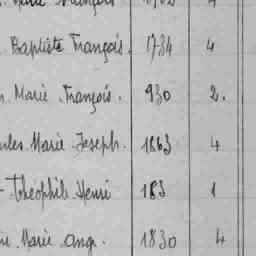 Marie François 1702 4
Baptiste François. 1734 4
Marie François. 930 2.
Marie Joseph. 1863 4
Théophile Henri 183 1
Marie Ange. 1830 4